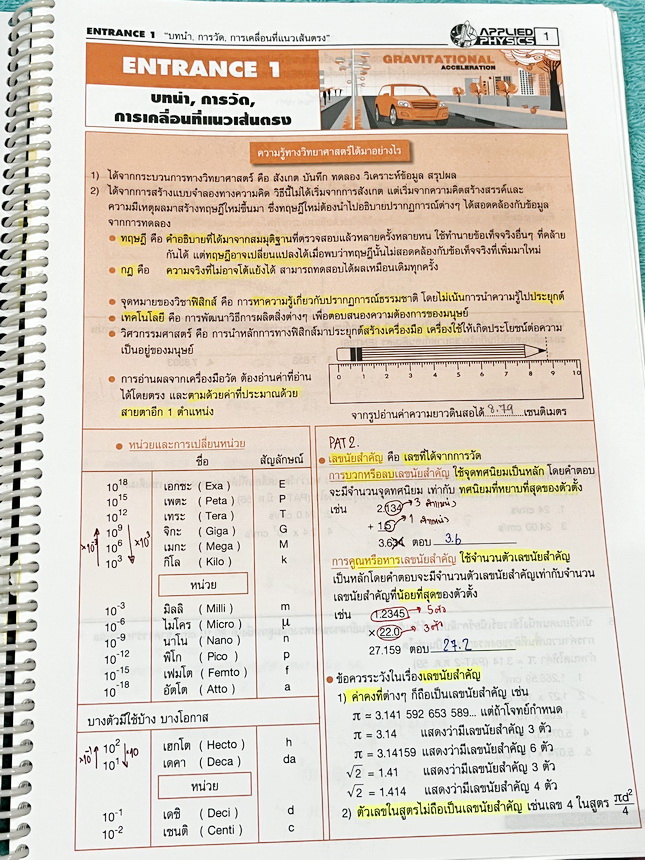 ENTRANCE 1 "บทนำ, การวัด, การเคลื่อนที่แนวเส้นตรง"
APPLIED PHYSICS 1
ENTRANCE 1
บทนำ, การวัด,
การเคลื่อนที่แนวเส้นตรง
GRAVITATIONAL
ACCELERATION
ความรู้ทางวิทยาศาสตร์ได้มาอย่างไร
1) ได้จากกระบวนการทางวิทยาศาสตร์ คือ สังเกต บันทึก ทดลอง วิเคราะห์ข้อมูล สรุปผล
2) ได้จากการสร้างแบบจำลองทางความคิด วิธีนี้ไม่ได้เริ่มจากการสังเกต แต่เริ่มจากความคิดสร้างสรรค์และ
ความมีเหตุผลมาสร้างทฤษฎีใหม่ขึ้นมา ซึ่งทฤษฎีใหม่ต้องนำไปอธิบายปรากฏการณ์ต่างๆ ได้สอดคล้องกับข้อมูล
จากการทดลอง
• ทฤษฎี คือ คำอธิบายที่ได้มาจากสมมุติฐานที่ตรวจสอบแล้วหลายครั้งหลายหน ใช้ทำนายข้อเท็จจริงอื่นๆ ที่คล้าย
กันได้ แต่ทฤษฎีอาจเปลี่ยนแปลงได้เมื่อพบว่าทฤษฎีนั้นไม่สอดคล้องกับข้อเท็จจริงที่เพิ่มมาใหม่
• กฎ คือ ความจริงที่ไม่อาจโต้แย้งได้ สามารถทดสอบได้ผลเหมือนเดิมทุกครั้ง
• จุดหมายของวิชาฟิสิกส์ คือ การหาความรู้เกี่ยวกับปรากฏการณ์ธรรมชาติ โดยไม่เน้นการนำความรู้ไปประยุกต์
• เทคโนโลยี คือ การพัฒนาวิธีการผลิตสิ่งต่างๆ เพื่อตอบสนองความต้องการของมนุษย์
• วิศวกรรมศาสตร์ คือ การนำหลักการทางฟิสิกส์มาประยุกต์สร้างเครื่องมือ เครื่องใช้ให้เกิดประโยชน์ต่อความ
เป็นอยู่ของมนุษย์
• การอ่านผลจากเครื่องมือวัด ต้องอ่านค่าที่อ่าน
ได้โดยตรง และตามด้วยค่าที่ประมาณด้วย
สายตาอีก 1 ตำแหน่ง
0 1 2 3 4 5 6 7 8 9 10
จากรูปอ่านค่าความยาวดินสอได้ 8.79 เซนติเมตร
• หน่วยและการเปลี่ยนหน่วย
ชื่อ สัญลักษณ์
10^18 เอกซะ ( Exa ) E
10^15 เพตะ ( Peta ) P
10^12 เทระ ( Tera ) T
10^9 จิกะ ( Giga ) G
10^6 เมกะ ( Mega ) M
10^3 กิโล ( Kilo ) k
หน่วย
10^-3 มิลลิ ( Milli ) m
10^-6 ไมโคร ( Micro ) μ
10^-9 นาโน ( Nano ) n
10^-12 พิโก ( Pico ) p
10^-15 เฟมโต ( Femto ) f
10^-18 อัตโต ( Atto ) a
บางตัวมีใช้บ้าง บางโอกาส
10^2 เฮกโต ( Hecto ) h
10^1 เดคา ( Deca ) da
หน่วย
10^-1 เดซิ ( Deci ) d
10^-2 เซนติ ( Centi ) c
PAT 2.
• เลขนัยสำคัญ คือ เลขที่ได้จากการวัด
การบวกหรือลบเลขนัยสำคัญ ใช้จุดทศนิยมเป็นหลัก โดยคำตอบ
จะมีจำนวนจุดทศนิยม เท่ากับ ทศนิยมที่หยาบที่สุดของตัวตั้ง
เช่น 2.134 → 3 ตำแหน่ง
+ 1.5 → 1 ตำแหน่ง
3.634 ตอบ 3.6
การคูณหรือหารเลขนัยสำคัญ ใช้จำนวนตัวเลขนัยสำคัญ
เป็นหลักโดยคำตอบจะมีจำนวนตัวเลขนัยสำคัญเท่ากับจำนวน
เลขนัยสำคัญที่น้อยที่สุดของตัวตั้ง
เช่น 1.2345 → 5 ตัว
× 22.0 → 3 ตัว
27.159 ตอบ 27.2
• ข้อควรระวังในเรื่องเลขนัยสำคัญ
1) ค่าคงที่ต่างๆ ก็ถือเป็นเลขนัยสำคัญ เช่น
π = 3.141 592 653 589... แต่ถ้าโจทย์กำหนด
π = 3.14 แสดงว่ามีเลขนัยสำคัญ 3 ตัว
π = 3.14159 แสดงว่ามีเลขนัยสำคัญ 6 ตัว
√2 = 1.41 แสดงว่ามีเลขนัยสำคัญ 3 ตัว
√2 = 1.414 แสดงว่ามีเลขนัยสำคัญ 4 ตัว
2) ตัวเลขในสูตรไม่ถือเป็นเลขนัยสำคัญ เช่นเลข 4 ในสูตร πd²/4